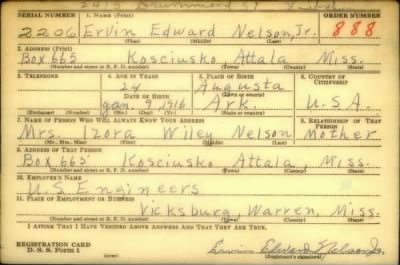 2415 Drummond St
SERIAL NUMBER 1. NAME (Print) ORDER NUMBER
2206 Ervin Edward Nelson, Jr. 888
(First) (Middle) (Last)
2. ADDRESS (Print)
Box 665 Kosciusko Attala Miss.
(Number and street or R. F. D. number) (Town) (County) (State)
3. TELEPHONE 4. AGE IN YEARS 5. PLACE OF BIRTH 6. COUNTRY OF CITIZENSHIP
24 Augusta
DATE OF BIRTH (Town or county)
Jan. 9, 1916 Ark. U.S.A.
(Exchange) (Number) (Mo.) (Day) (Yr.) (State or country)
7. NAME OF PERSON WHO WILL ALWAYS KNOW YOUR ADDRESS 8. RELATIONSHIP OF THAT PERSON
Mrs. Izora Wiley Nelson Mother
(Mr., Mrs., Miss) (First) (Middle) (Last)
9. ADDRESS OF THAT PERSON
Box 665 Kosciusko Attala, Miss.
(Number and street or R. F. D. number) (Town) (County) (State)
10. EMPLOYER'S NAME
U.S Engineers
11. PLACE OF EMPLOYMENT OR BUSINESS
Vicksburg, Warren, Miss.
(Number and street or R. F. D. number) (Town) (County) (State)
I AFFIRM THAT I HAVE VERIFIED ABOVE ANSWERS AND THAT THEY ARE TRUE.
REGISTRATION CARD
D. S. S. Form 1 Ervin Edward Nelson Jr.
(Registrant's signature)